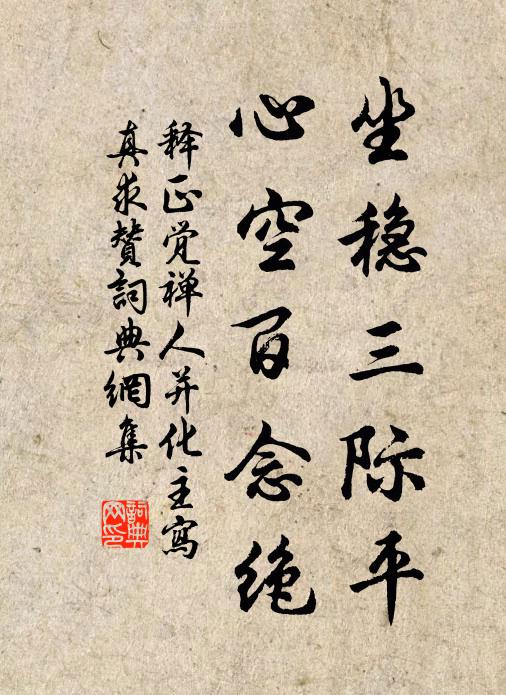 坐稳三际平
心空百念绝
释正觉禅人并化主寫
真求贊詞典網集
詞典網印